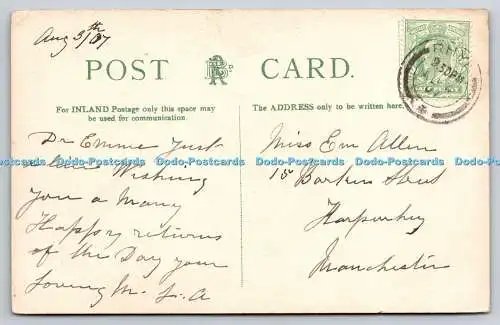 Aug 3/th 07
POST CARD.
For INLAND Postage only this space may
be used for communication.
The ADDRESS only to be written here.
RHYL
Dr Emme Just
a line Wishing
you a Many
Happy returns
of the Day your
Loving M. L. A
Miss Em Allen
15 Barkers Street
Harpurhey
Manchester
Dodo-Postcards Dodo-Postcards Dodo-Postcards Dodo-Postcards Dodo-Postcards